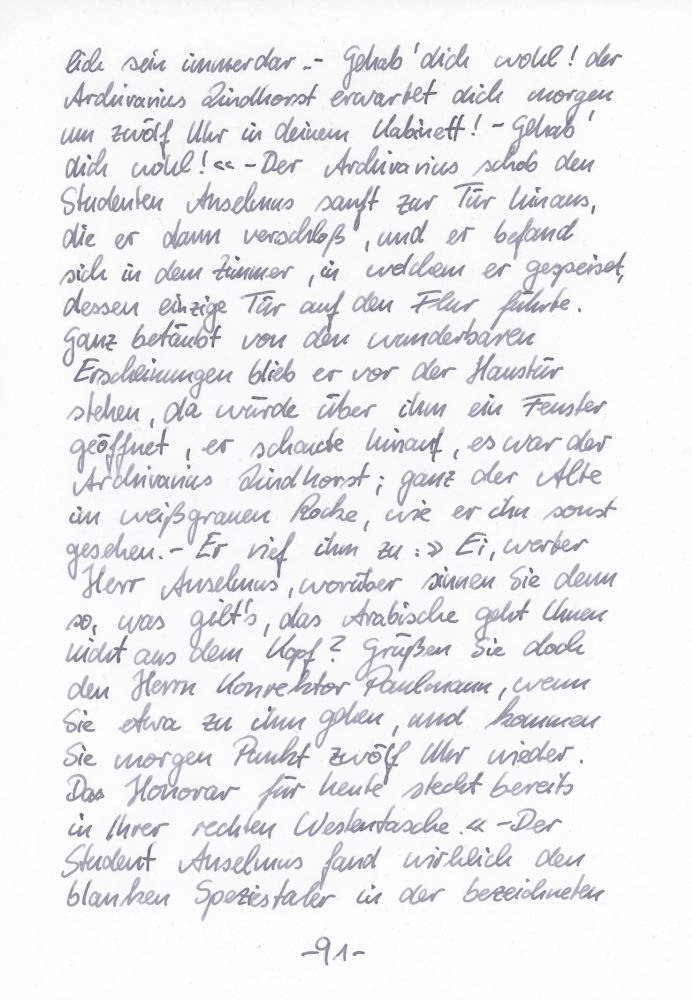 lich sein immerdar.- Gehab' dich wohl! der
Archivarius Lindhorst erwartet dich morgen
um zwölf Uhr in deinem Kabinett! - Gehab'
dich wohl!« - Der Archivarius schob den
Studenten Anselmus sanft zur Tür hinaus,
die er dann verschloß, und er befand
sich in dem Zimmer, in welchem er gespeiset,
dessen einzige Tür auf den Flur führte.
Ganz betäubt von den wunderbaren
Erscheinungen blieb er vor der Haustür
stehen, da wurde über ihm ein Fenster
geöffnet, er schaute hinauf, es war der
Archivarius Lindhorst; ganz der Alte
im weißgrauen Rocke, wie er ihn sonst
gesehen.- Er rief ihm zu: »Ei, werter
Herr Anselmus, worüber sinnen Sie denn
so, was gilt's, das Arabische geht Ihnen
nicht aus dem Kopf? Grüßen Sie doch
den Herrn Konrektor Paulmann, wenn
Sie etwa zu ihm gehen, und kommen
Sie morgen Punkt zwölf Uhr wieder.
Das Honorar für heute steckt bereits
in Ihrer rechten Westentasche.« - Der
Student Anselmus fand wirklich den
blanken Speziestaler in der bezeichneten
-91-